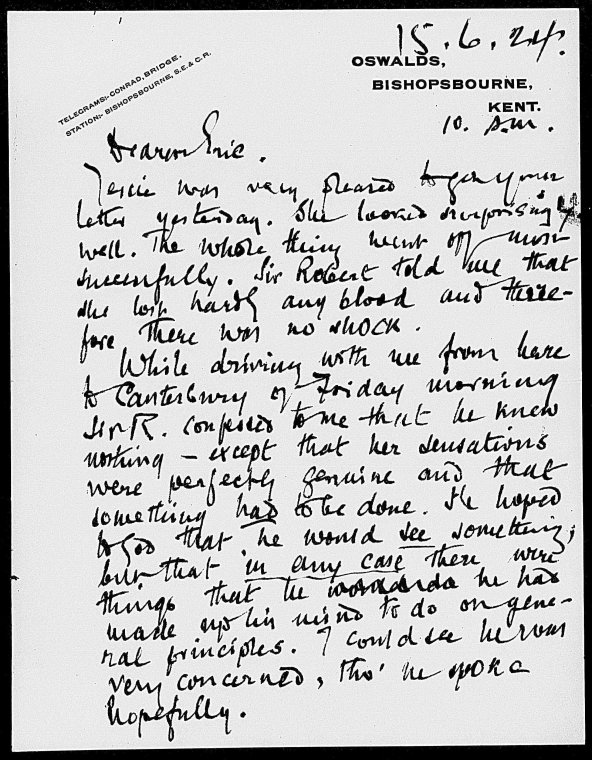 15.6.24.
TELEGRAMS:- CONRAD, BRIDGE.
STATION:- BISHOPSBOURNE, S.E. & C.R.
OSWALDS,
BISHOPSBOURNE,
KENT.
10. a.m.
Dearest Eric.
Jessie was very pleased to get your
letter yesterday. She looked surprisingly
well. The whole thing went off most
successfully. Sir Robert told me that
she lost hardly any blood and there-
fore there was no shock.
While driving with me from here
to Canterbury of Friday morning
Sir R. confessed to me that he knew
nothing – except that her sensations
were perfectly genuine and that
something had to be done. He hoped
to God that he would see something;
but that in any case there were
things that he he had
made up his mind to do on gene-
ral principles. I could see he was
very concerned, tho' he spoke
hopefully.